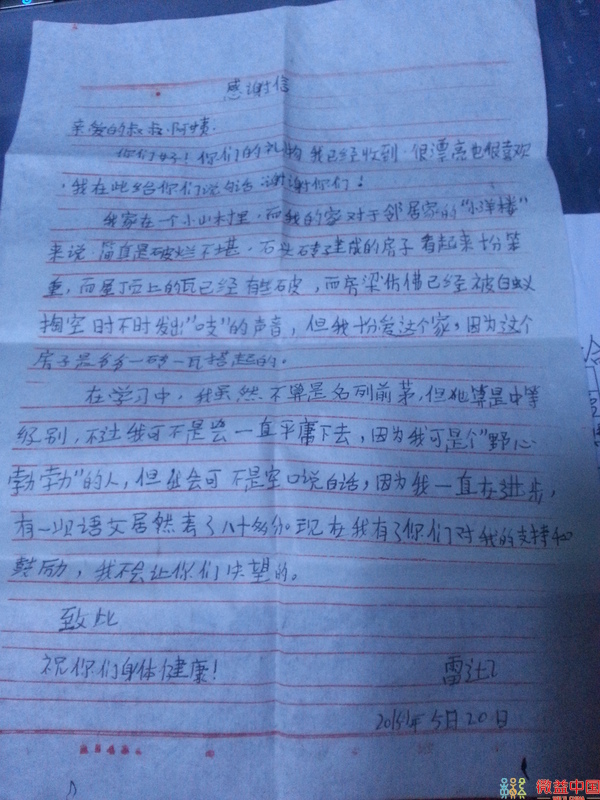 感谢信
亲爱的叔叔.阿姨.
你们好！你们的礼物我已经收到.很漂亮也很喜欢
.我在此给你们说句话 谢谢你们！
我家在一个小山村里，而我的家对于邻居家的“小洋楼”
来说.简直是破烂不堪.石头砖建成的房子看起来十分笨
重，而屋顶上的瓦已经有些破，而房梁仿佛已经被白蚁
掏空时不时发出“吱”的声音，但我十分爱这个家，因为这个
房子是爷爷一砖一瓦搭起的。
在学习中，我虽然不算是名列前茅，但也算是中等
级别，不过我可不是会一直平庸下去，因为我可是个“野心
勃勃”的人，但我会可不是空口说白话，因为我一直在进步，
有一次语文居然考了八十多分。现在我有了你们对我的支持和
鼓励，我不会让你们失望的。
致此
祝你们身体健康！
雷
5月20日
微益中国